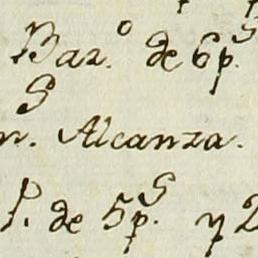 Baz.º de 6 p.s
n. Alcanza.
P. de 5 p.s y 2